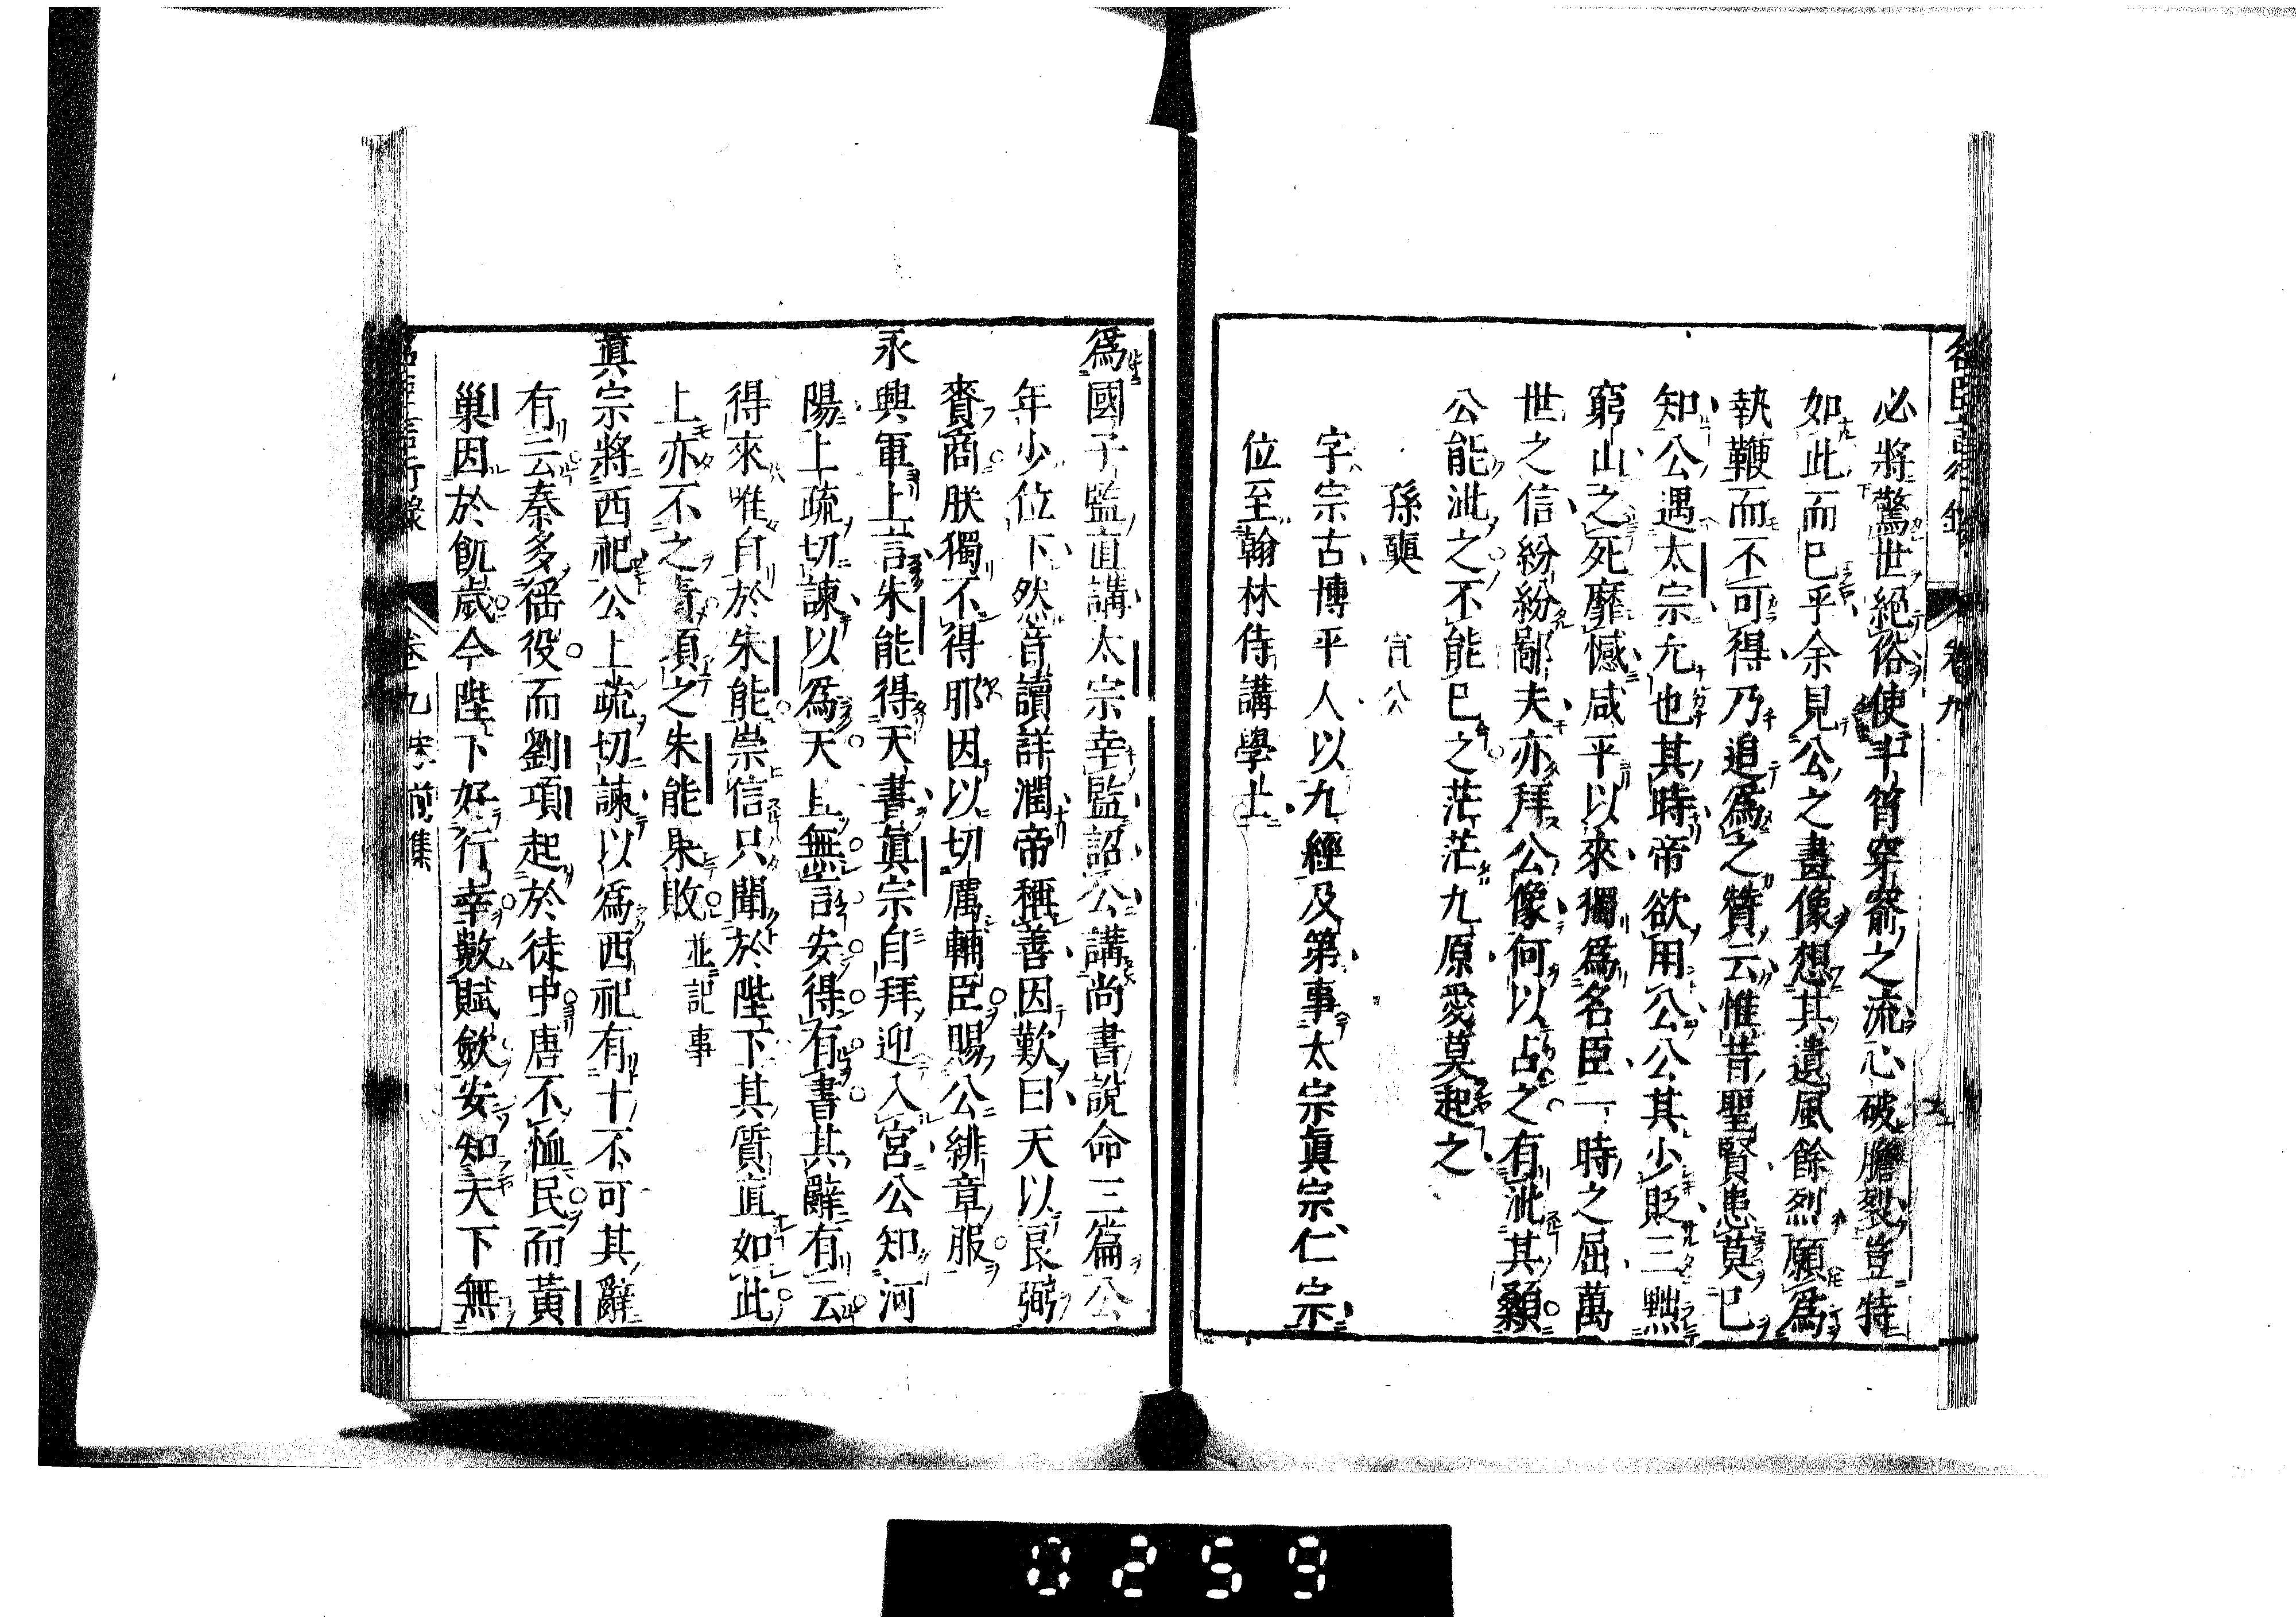 必將驚世絕俗使斗筲穿窬之流心破膽裂豈特
如此而已乎余見公之畫像想其遺風餘烈願爲
執鞭而不可得乃追爲之贊云惟昔聖賢患莫已
知公遇太宗允也其時帝欲用公公其少貶三黜
窮山之死靡憾咸平以來獨爲名臣一時之屈萬
世之信紛紛鄙夫亦拜公像何以占之有泚其顙
公能泚之不能已之茫茫九原愛莫起之
孫奭 宣公
字宗古博平人以九經及第事太宗眞宗仁宗
位至翰林侍講學士
爲國子監直講太宗幸監詔公講尚書說命三篇公
年少位下然音讀詳潤帝稱善因歎曰天以良弼
賚商朕獨不得耶因以切厲輔臣賜公緋章服
永興軍上言朱能得天書眞宗自拜迎入宮公知河
陽上疏切諫以爲天且無言安得有書其辭有云
得來唯自於朱能崇信只聞於陛下其質直如此
上亦不之責頃之朱能果敗 並記事
眞宗將西祀公上疏切諫以爲西祀有十不可其辭
有云秦多徭役而劉項起於徒中唐不恤民而黃
巢因於飢歲今陛下好行幸數賦斂安知天下無
名臣言行錄 卷九 宋 前集
0259